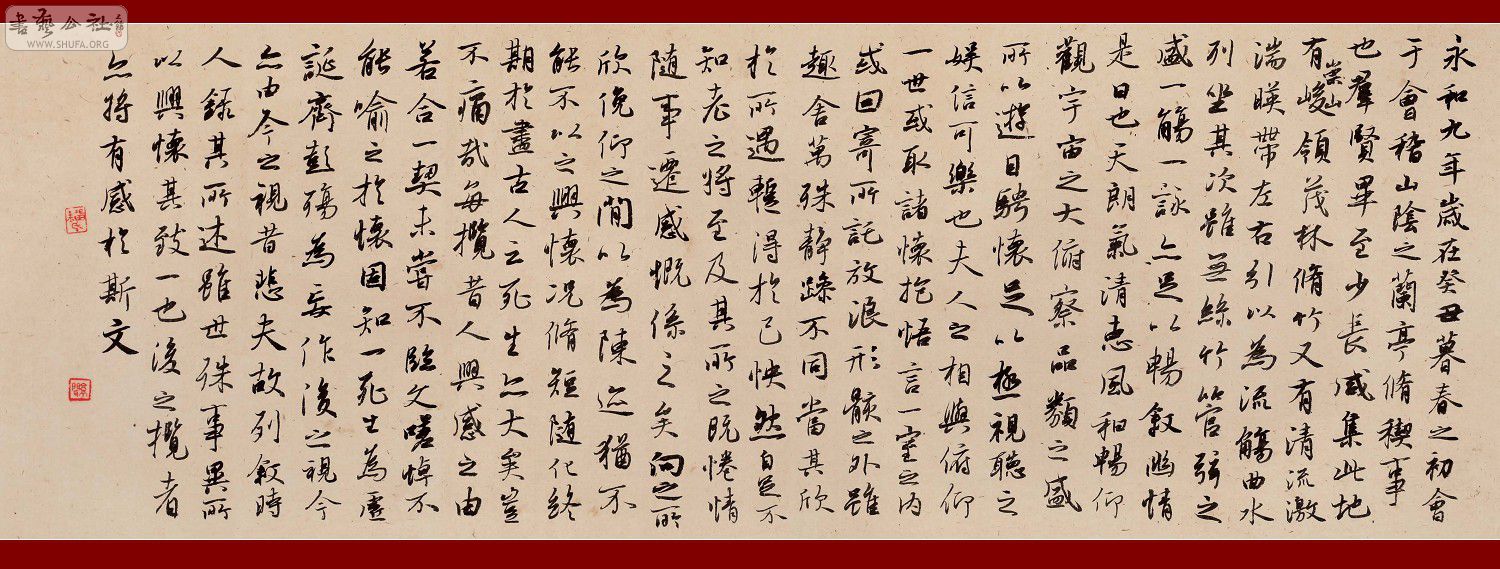 書藝公社
WWW.SHUFA.ORG
永和九年歲在癸丑暮春之初會
于會稽山陰之蘭亭脩稧事
也羣賢畢至少長咸集此地
有崇山峻領茂林脩竹又有清流激
湍暎帶左右引以為流觴曲水
列坐其次雖無絲竹管弦之
盛一觴一詠亦足以暢敘幽情
是日也天朗氣清惠風和暢仰
觀宇宙之大俯察品類之盛
所以遊目騁懷足以極視聽之
娛信可樂也夫人之相與俯仰
一世或取諸懷抱悟言一室之內
或因寄所託放浪形骸之外雖
趣舍萬殊靜躁不同當其欣
於所遇蹔得於己怏然自足不
知老之將至及其所之既惓情
隨事遷感慨係之矣向之所
欣俛仰之閒以為陳迹猶不
能不以之興懷况脩短隨化終
期於盡古人云死生亦大矣豈
不痛哉每攬昔人興感之由
若合一契未嘗不臨文嗟悼不
能喻之於懷固知一死生為虛
誕齊彭殤為妄作後之視今
亦由今之視昔悲夫故列敘時
人錄其所述雖世殊事異所
以興懷其致一也後之攬者
亦將有感於斯文